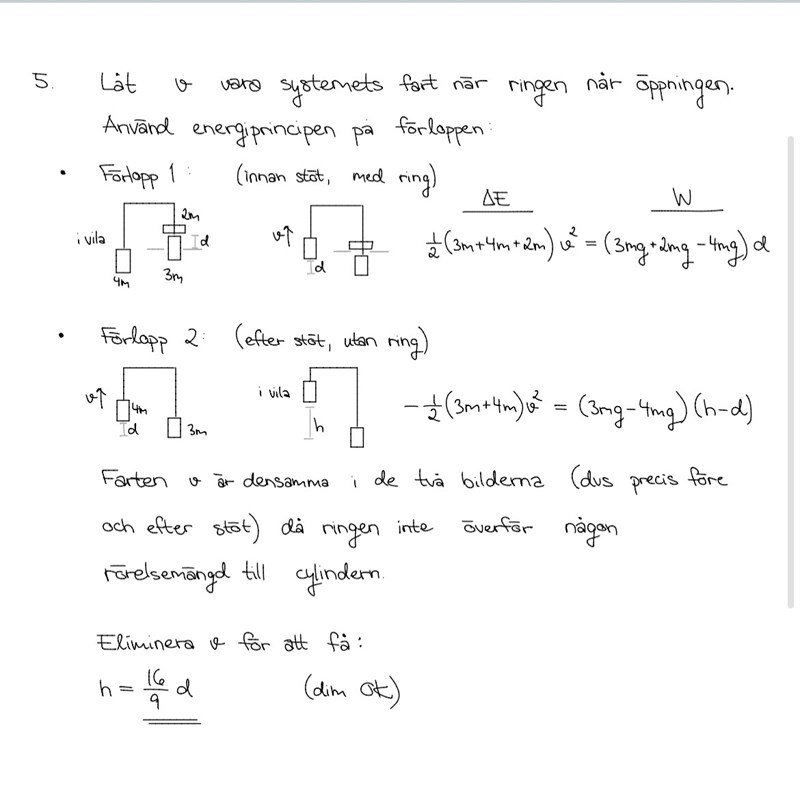 5. Låt v vara systemets fart när ringen når öppningen.
Använd energiprincipen på förloppen:
• Förlopp 1: (innan stöt, med ring)
ΔE W
i vila 2m d 4m 3m v↑ d
½(3m+4m+2m)v² = (3mg+2mg-4mg)d
• Förlopp 2: (efter stöt, utan ring)
v↑ 4m d 3m i vila h
-½(3m+4m)v² = (3mg-4mg)(h-d)
Farten v är densamma i de två bilderna (dvs precis före
och efter stöt) då ringen inte överför någon
rörelsemängd till cylindern.
Eliminera v för att få:
h = 16/9 d (dim OK)